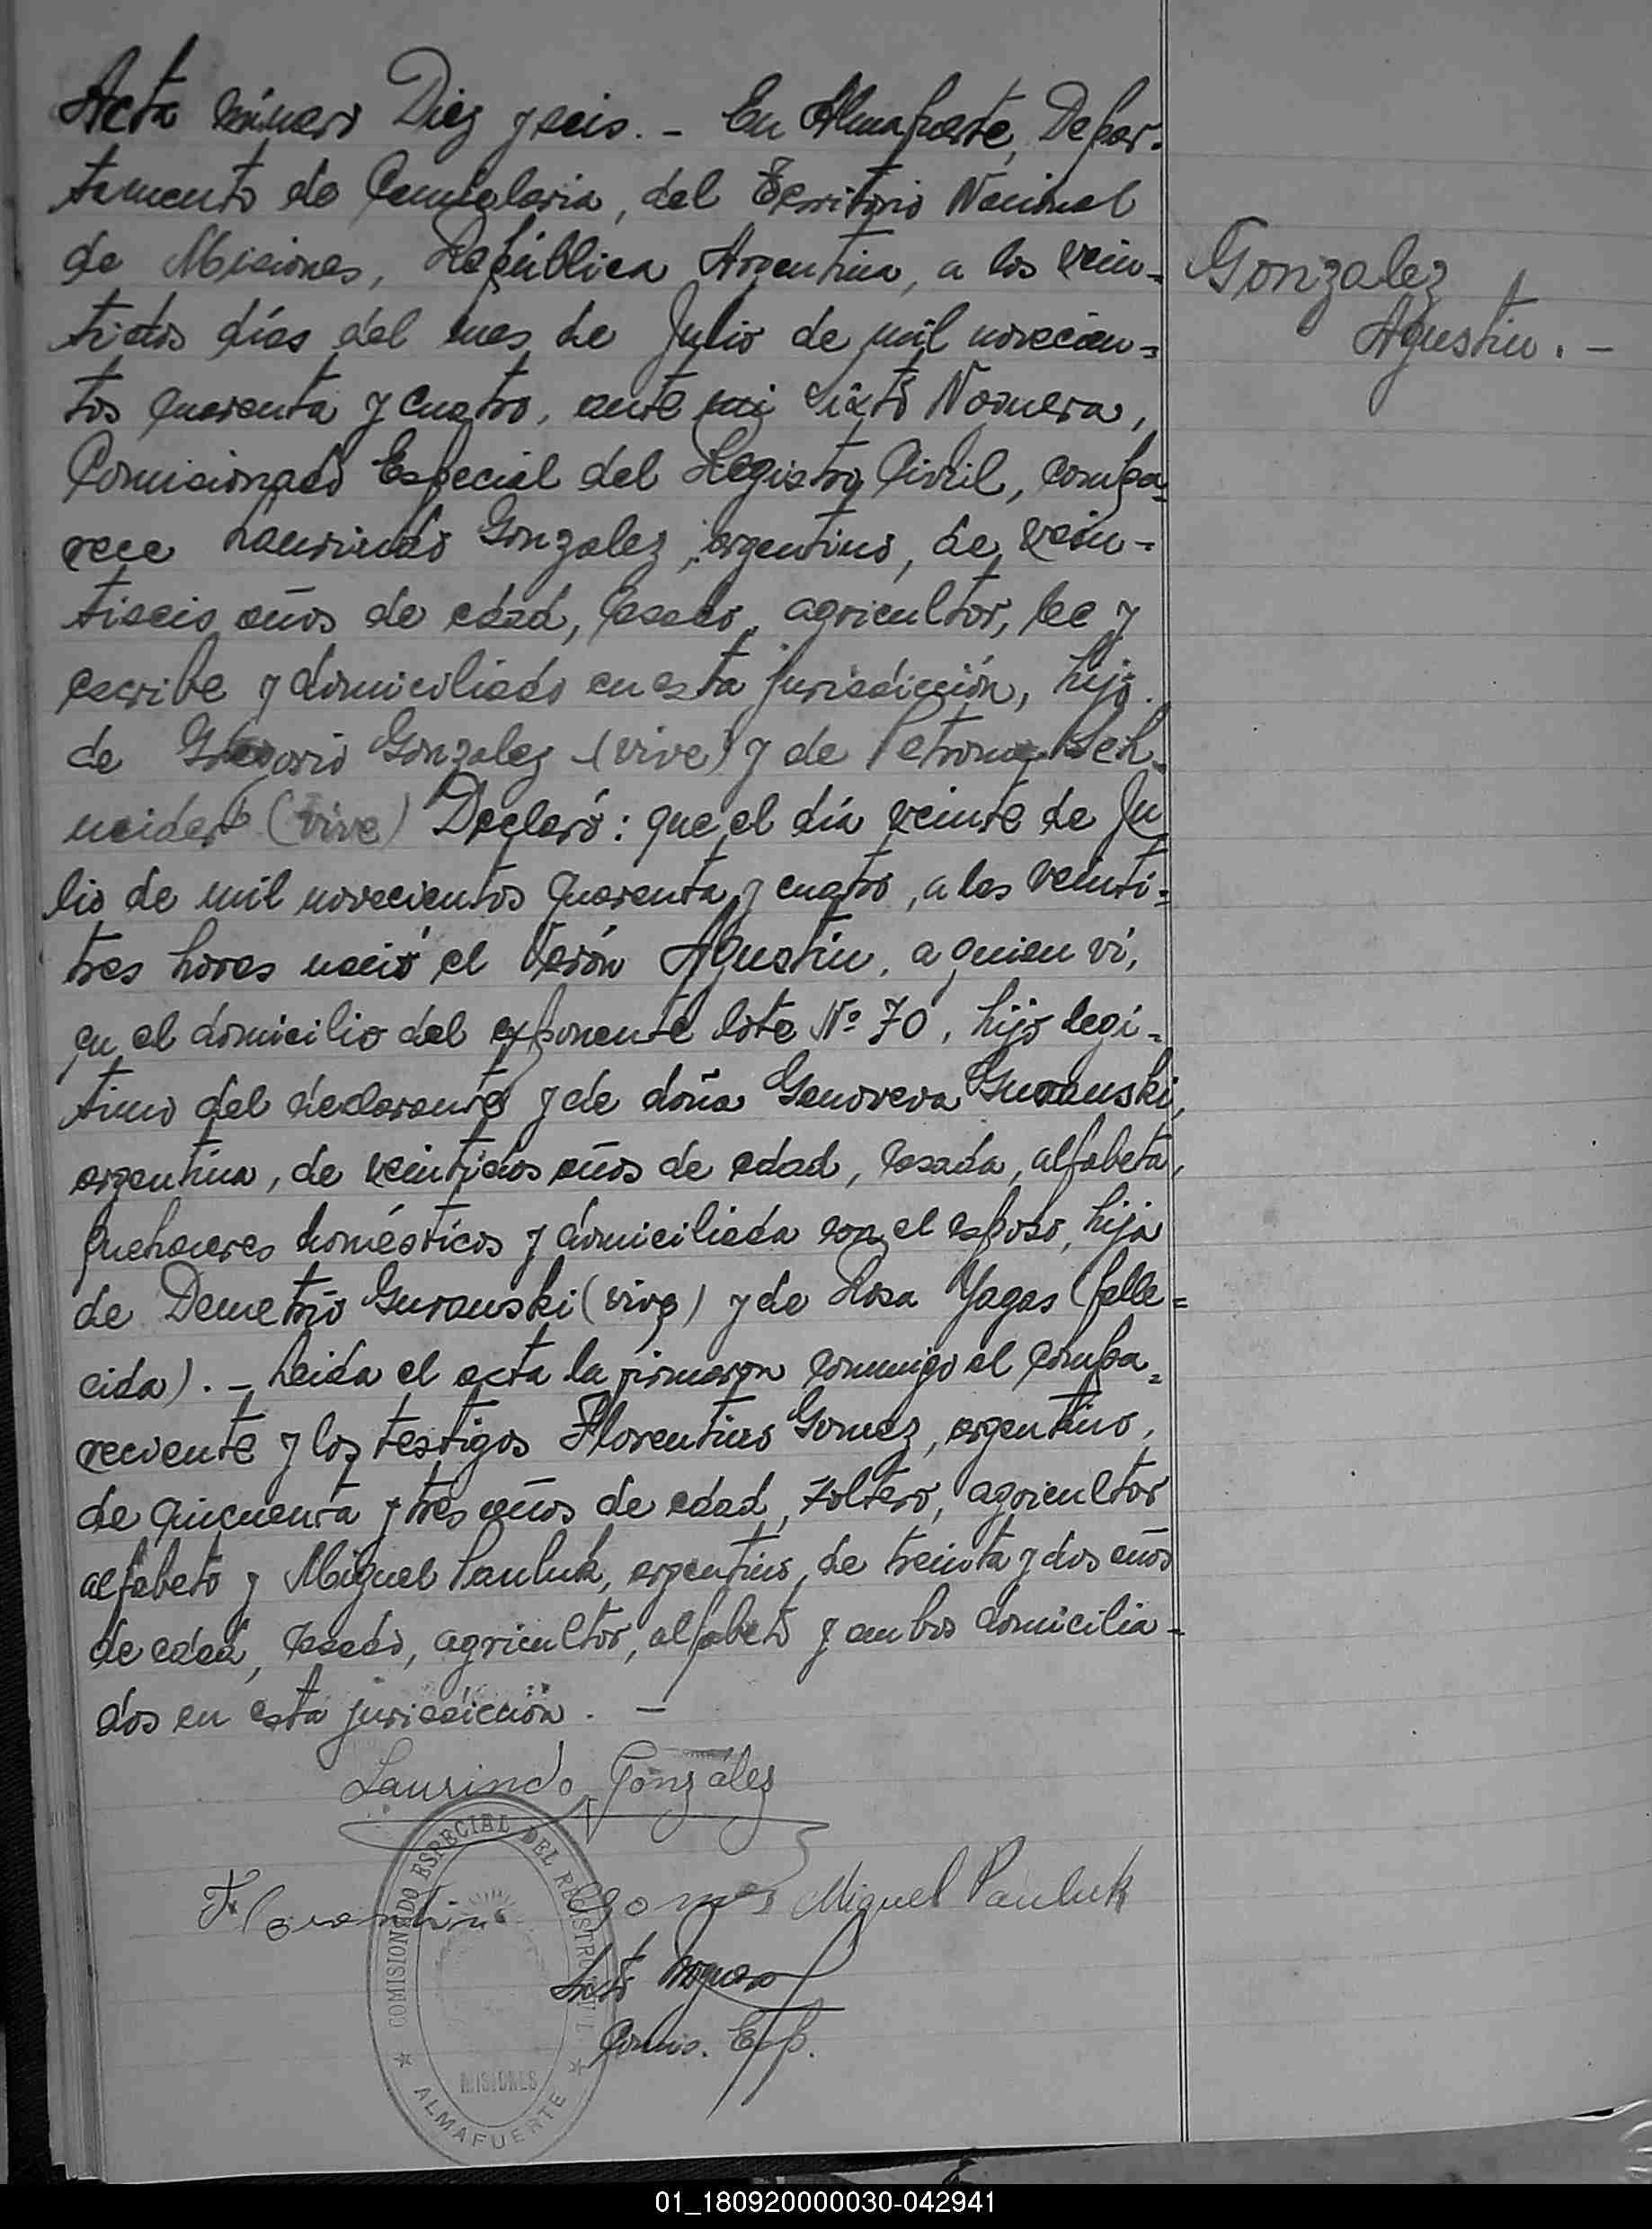 Acta número Diez y seis. - En Almafuerte, Depar-
tamento de Candelaria, del Territorio Nacional
de Misiones, República Argentina, a los vein=
Gonzalez
Agustin. -
tidos días del mes de Julio de mil novecien=
tos cuarenta y cuatro, ante mi Sixto Noguera,
Comisionado Especial del Registro Civil, compa=
rece Laurindo Gonzalez, argentino, de vein-
tiseis años de edad, casado, agricultor, lee y
escribe y domiciliado en esta jurisdicción, hijo
de Gregorio Gonzalez (vive) y de Petrona Sch-
neider (vive) Declaró: que el día veinte de Ju
lio de mil novecientos cuarenta y cuatro, a las veinti=
tres horas nació el Varón Agustin, a quien vi,
en el domicilio del exponente lote Nº 70, hijo legi-
timo del declarante y de doña Genoveva Guranski,
argentina, de veintidos años de edad, casada, alfabeta,
quehaceres domésticos y domiciliada con el esposo, hija
de Demetrio Guranski (vive) y de Rosa Yagas (falle=
cida). - Leida el acta la firmaron conmigo el compa=
reciente y los testigos Florentino Gomez, argentino,
de cincuenta y tres años de edad, soltero, agricultor
alfabeto y Miguel Pauluk, argentino, de treinta y dos años
de edad, casado, agricultor, alfabeto y ambos domicilia-
dos en esta jurisdicción. -
Laurindo Gonzáles
Florentino Gomes Miguel Pauluk
Sixto Noguera
Comis. Esp.
COMISIONADO ESPECIAL DEL REGISTRO CIVIL
MISIONES
ALMAFUERTE
01_180920000030-042941